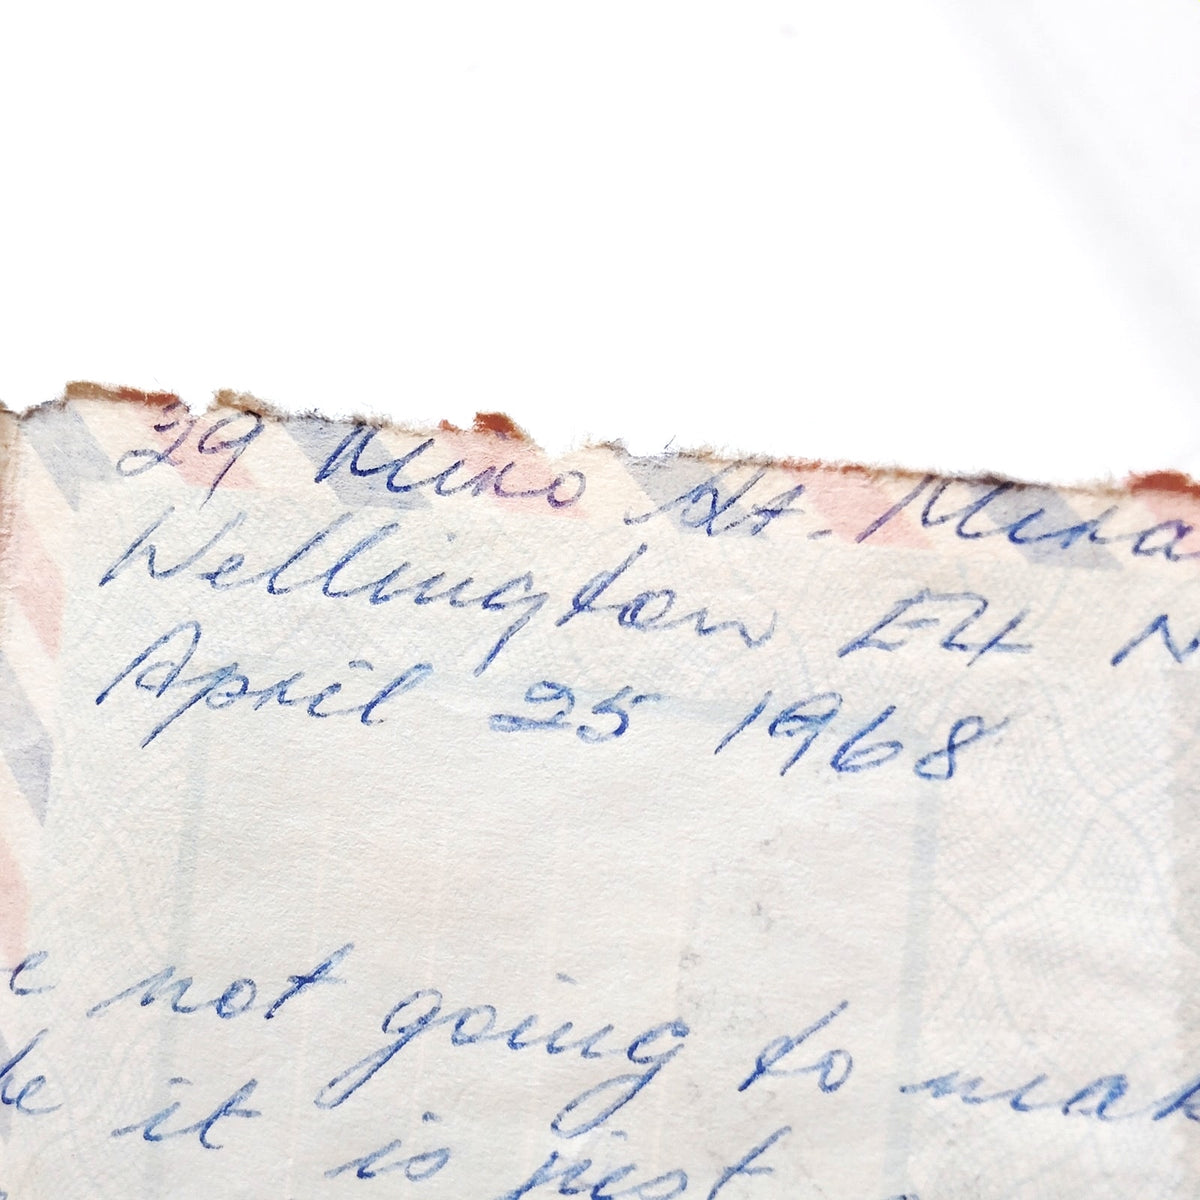 29 Miro St. Mira
Wellington E4 N.
April 25 1968
e not going to mak
ke it is just